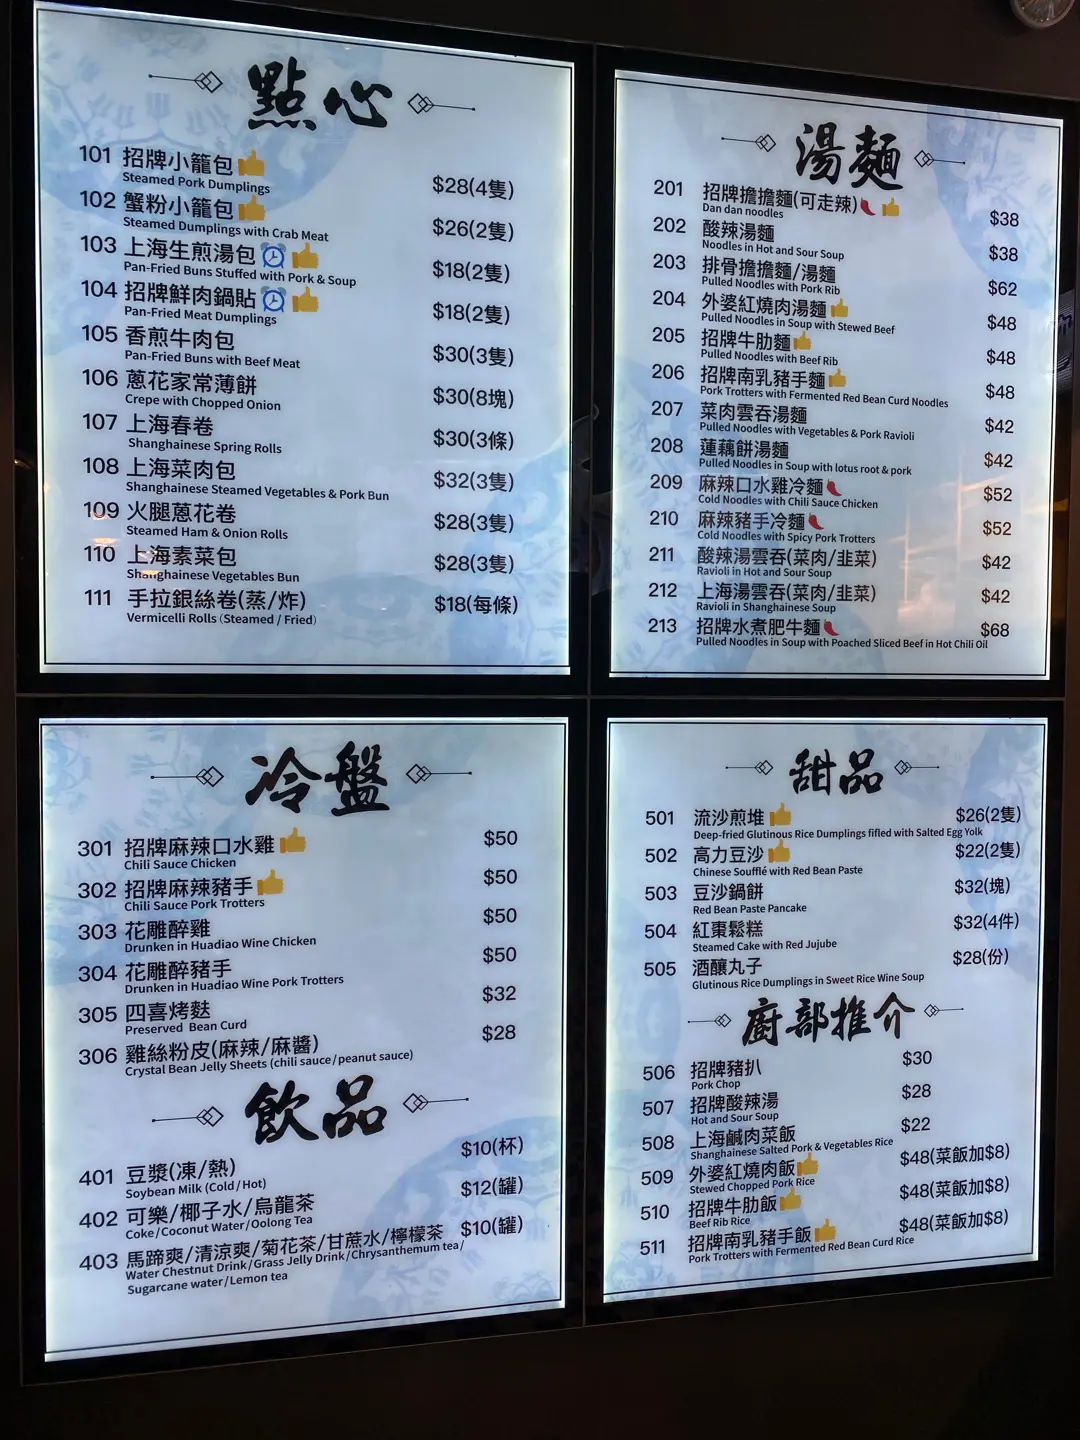 點心
101 招牌小籠包
Steamed Pork Dumplings
$28(4隻)
102 蟹粉小籠包
Steamed Dumplings with Crab Meat
$26(2隻)
103 上海生煎湯包
Pan-Fried Buns Stuffed with Pork & Soup
$18(2隻)
104 招牌鮮肉鍋貼
Pan-Fried Meat Dumplings
$18(2隻)
105 香煎牛肉包
Pan-Fried Buns with Beef Meat
$30(3隻)
106 蔥花家常薄餅
Crepe with Chopped Onion
$30(8塊)
107 上海春卷
Shanghainese Spring Rolls
$30(3條)
108 上海菜肉包
Shanghainese Steamed Vegetables & Pork Bun
$32(3隻)
109 火腿蔥花卷
Steamed Ham & Onion Rolls
$28(3隻)
110 上海素菜包
Shanghainese Vegetables Bun
$28(3隻)
111 手拉銀絲卷(蒸/炸)
Vermicelli Rolls (Steamed / Fried)
$18(每條)
湯麵
201 招牌擔擔麵(可走辣)
Dan dan noodles
$38
202 酸辣湯麵
Noodles in Hot and Sour Soup
$38
203 排骨擔擔麵/湯麵
Pulled Noodles with Pork Rib
$62
204 外婆紅燒肉湯麵
Pulled Noodles in Soup with Stewed Beef
$48
205 招牌牛肋麵
Pulled Noodles with Beef Rib
$48
206 招牌南乳豬手麵
Pork Trotters with Fermented Red Bean Curd Noodles
$48
207 菜肉雲吞湯麵
Pulled Noodles with Vegetables & Pork Ravioli
$42
208 蓮藕餅湯麵
Pulled Noodles in Soup with lotus root & pork
$42
209 麻辣口水雞冷麵
Cold Noodles with Chili Sauce Chicken
$52
210 麻辣豬手冷麵
Cold Noodles with Spicy Pork Trotters
$52
211 酸辣湯雲吞(菜肉/韭菜)
Ravioli in Hot and Sour Soup
$42
212 上海湯雲吞(菜肉/韭菜)
Ravioli in Shanghainese Soup
$42
213 招牌水煮肥牛麵
Pulled Noodles in Soup with Poached Sliced Beef in Hot Chili Oil
$68
冷盤
301 招牌麻辣口水雞
Chili Sauce Chicken
$50
302 招牌麻辣豬手
Chili Sauce Pork Trotters
$50
303 花雕醉雞
Drunken in Huadiao Wine Chicken
$50
304 花雕醉豬手
Drunken in Huadiao Wine Pork Trotters
$50
305 四喜烤麩
Preserved Bean Curd
$32
306 雞絲粉皮(麻辣/麻醬)
Crystal Bean Jelly Sheets (chili sauce/peanut sauce)
$28
飲品
401 豆漿(凍/熱)
Soybean Milk (Cold/Hot)
$10(杯)
402 可樂/椰子水/烏龍茶
Coke/Coconut Water/Oolong Tea
$12(罐)
403 馬蹄爽/清涼爽/菊花茶/甘蔗水/檸檬茶
Water Chestnut Drink/Grass Jelly Drink/Chrysanthemum tea/
Sugarcane water/Lemon tea
$10(罐)
甜品
501 流沙煎堆
Deep-fried Glutinous Rice Dumplings fifled with Salted Egg Yolk
$26(2隻)
502 高力豆沙
Chinese Soufflé with Red Bean Paste
$22(2隻)
503 豆沙鍋餅
Red Bean Paste Pancake
$32(塊)
504 紅棗鬆糕
Steamed Cake with Red Jujube
$32(4件)
505 酒釀丸子
Glutinous Rice Dumplings in Sweet Rice Wine Soup
$28(份)
廚部推介
506 招牌豬扒
Pork Chop
$30
507 招牌酸辣湯
Hot and Sour Soup
$28
508 上海鹹肉菜飯
Shanghainese Salted Pork & Vegetables Rice
$22
509 外婆紅燒肉飯
Stewed Chopped Pork Rice
$48(菜飯加$8)
510 招牌牛肋飯
Beef Rib Rice
$48(菜飯加$8)
511 招牌南乳豬手飯
Pork Trotters with Fermented Red Bean Curd Rice
$48(菜飯加$8)